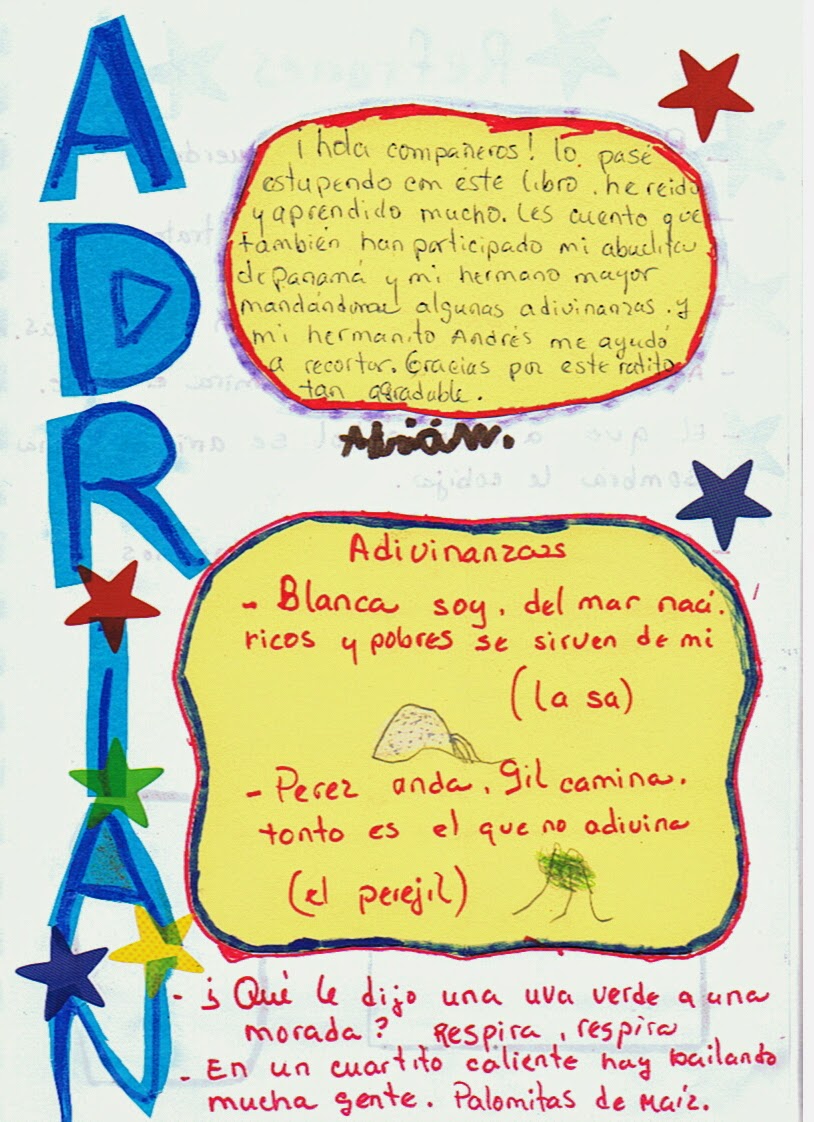 ADRIAN
¡hola compañeros! lo pasé
estupendo con este libro. he reido
y aprendido mucho. Les cuento que
también han participado mi abuelita
de panamá y mi hermano mayor
mandándome algunas adivinanzas. y
mi hermanito Andrés me ayudó
a recortar. Gracias por este ratito
tan agradable.
Adrián.
Adivinanzas
- Blanca soy, del mar nací.
ricos y pobres se sirven de mi
(la sa)
- Perez anda, Gil camina.
tonto es el que no adivina
(el perejil)
- ¿Qué le dijo una uva verde a una
morada? Respira, respira
- En un cuartito caliente hay bailando
mucha gente. Palomitas de maíz.